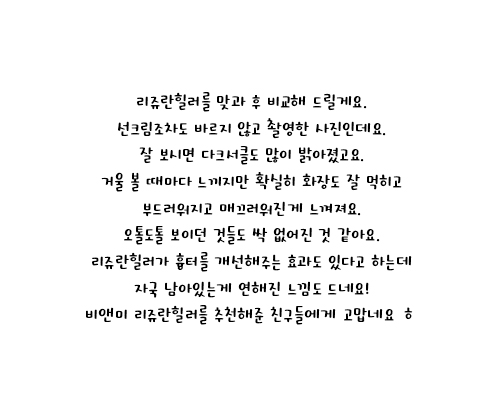 리쥬란힐러를 맞과 후 비교해 드릴게요.
선크림조차도 바르지 않고 촬영한 사진인데요.
잘 보시면 다크서클도 많이 밝아졌고요.
거울 볼 때마다 느끼지만 확실히 화장도 잘 먹히고
부드러워지고 매끄러워진게 느껴져요.
오톨도톨 보이던 것들도 싹 없어진 것 같아요.
리쥬란힐러가 흉터를 개선해주는 효과도 있다고 하는데
자국 남아있는게 연해진 느낌도 드네요!
비앤미 리쥬란힐러를 추천해준 친구들에게 고맙네요 ㅎ